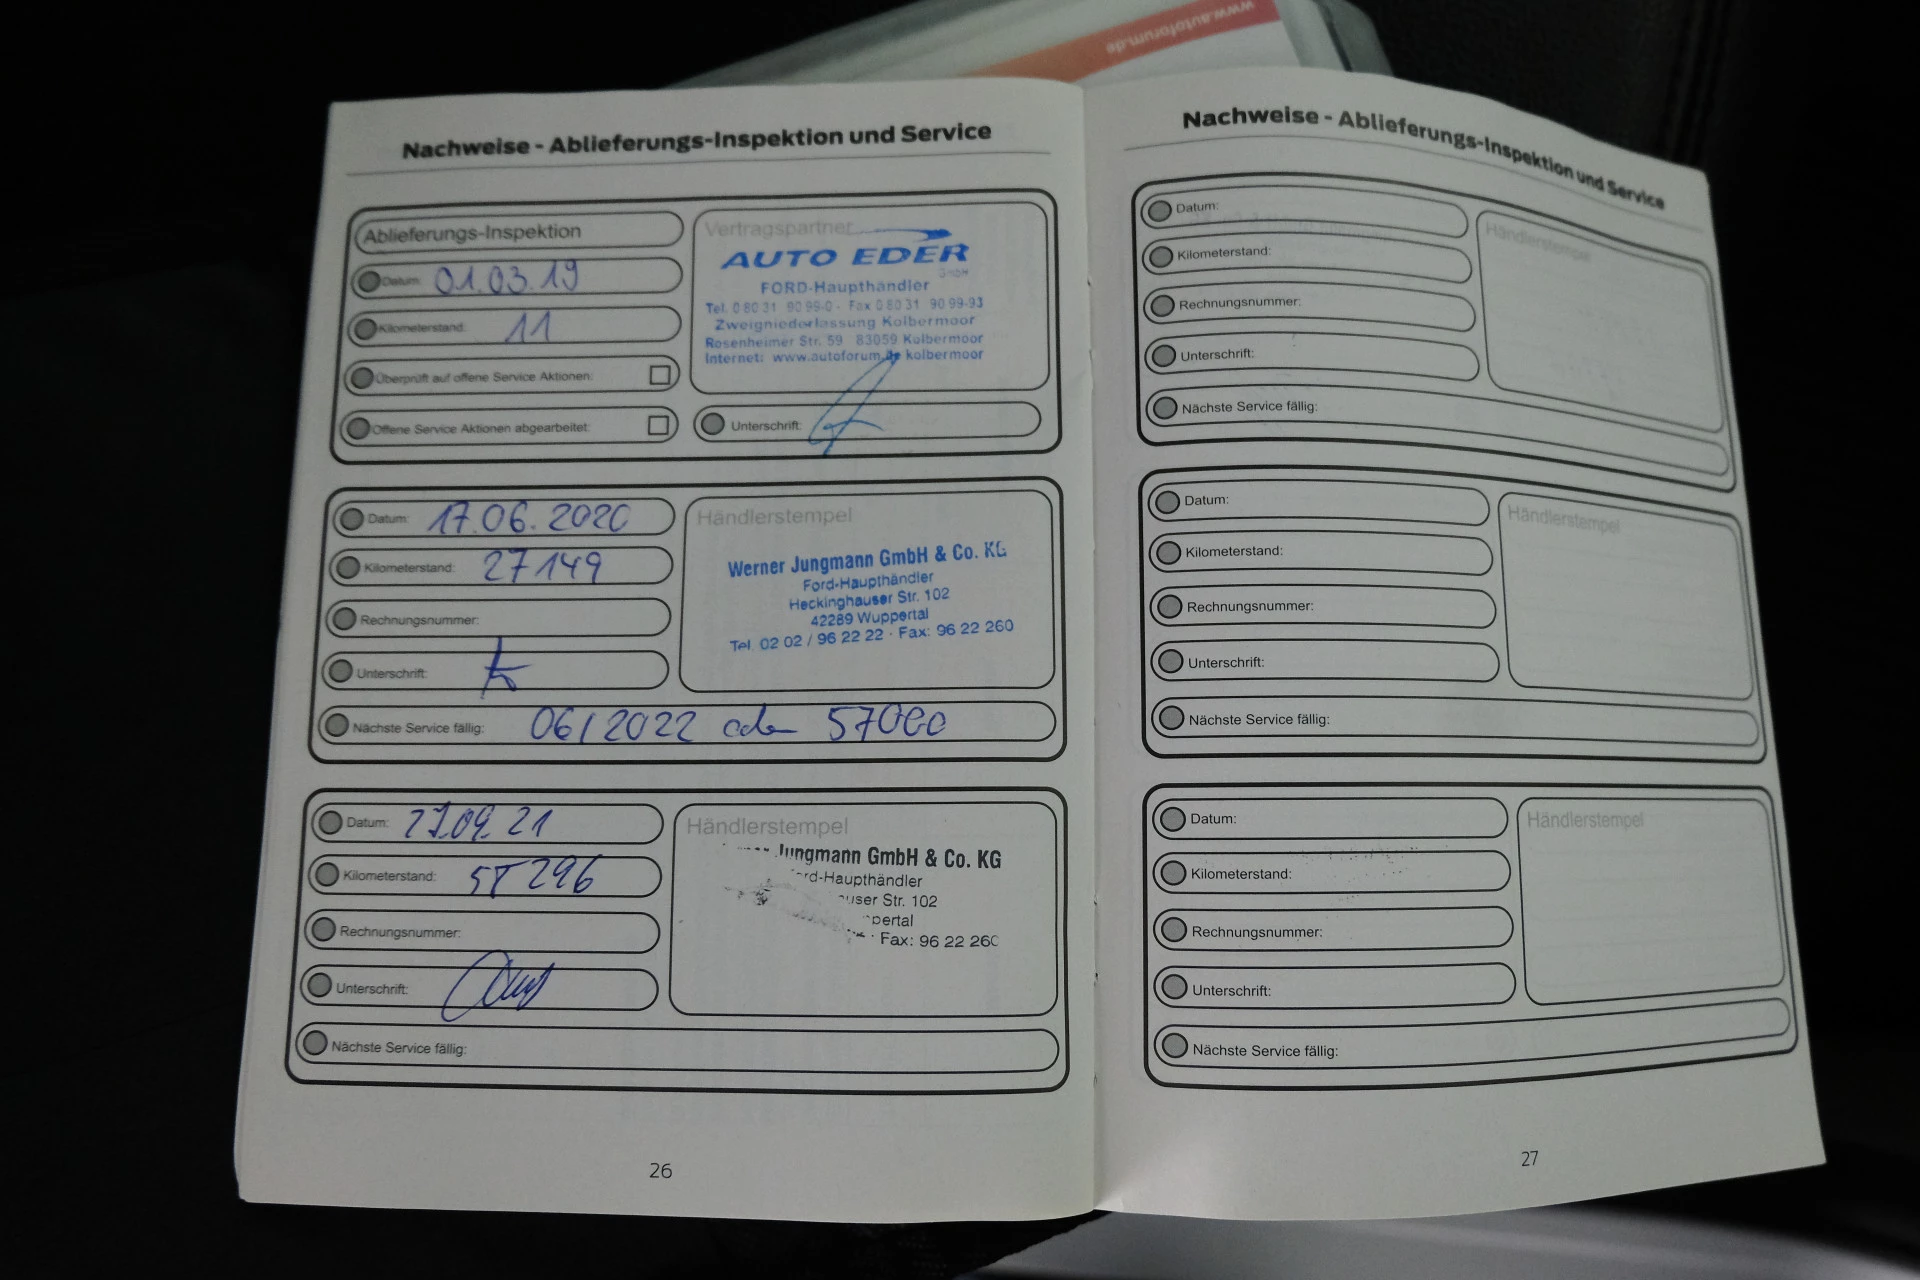 www.autoforum.de
Nachweise - Ablieferungs-Inspektion und Service
Ablieferungs-Inspektion
Datum: 01.03.19
Kilometerstand: 11
Überprüft auf offene Service Aktionen:
Offene Service Aktionen abgearbeitet:
Vertragspartner
AUTO EDER
GmbH
FORD-Haupthändler
Tel. 0 80 31 90 99-0 - Fax 0 80 31 90 99-93
Zweigniederlassung Kolbermoor
Rosenheimer Str. 59 83059 Kolbermoor
Internet: www.autoforum.de kolbermoor
Unterschrift:
Datum: 17.06.2020
Kilometerstand: 27149
Rechnungsnummer:
Unterschrift:
Nächste Service fällig: 06/2022 oder 57000
Händlerstempel
Werner Jungmann GmbH & Co. KG
Ford-Haupthändler
Heckinghauser Str. 102
42289 Wuppertal
Tel. 02 02 / 96 22 22 · Fax: 96 22 260
Datum: 27.09.21
Kilometerstand: 57296
Rechnungsnummer:
Unterschrift:
Nächste Service fällig:
Händlerstempel
Jungmann GmbH & Co. KG
ord-Haupthändler
user Str. 102
pertal
· Fax: 96 22 260
26
Nachweise - Ablieferungs-Inspektion und Service
Datum:
Kilometerstand:
Rechnungsnummer:
Unterschrift:
Nächste Service fällig:
Händlerstempel
Datum:
Kilometerstand:
Rechnungsnummer:
Unterschrift:
Nächste Service fällig:
Händlerstempel
Datum:
Kilometerstand:
Rechnungsnummer:
Unterschrift:
Nächste Service fällig:
Händlerstempel
27